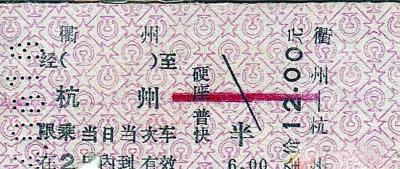 衢州
经( )至
杭州
限乘当日当次车
在2日内到有效
硬座普快
半
6.00
衢州—杭州
价12.00元